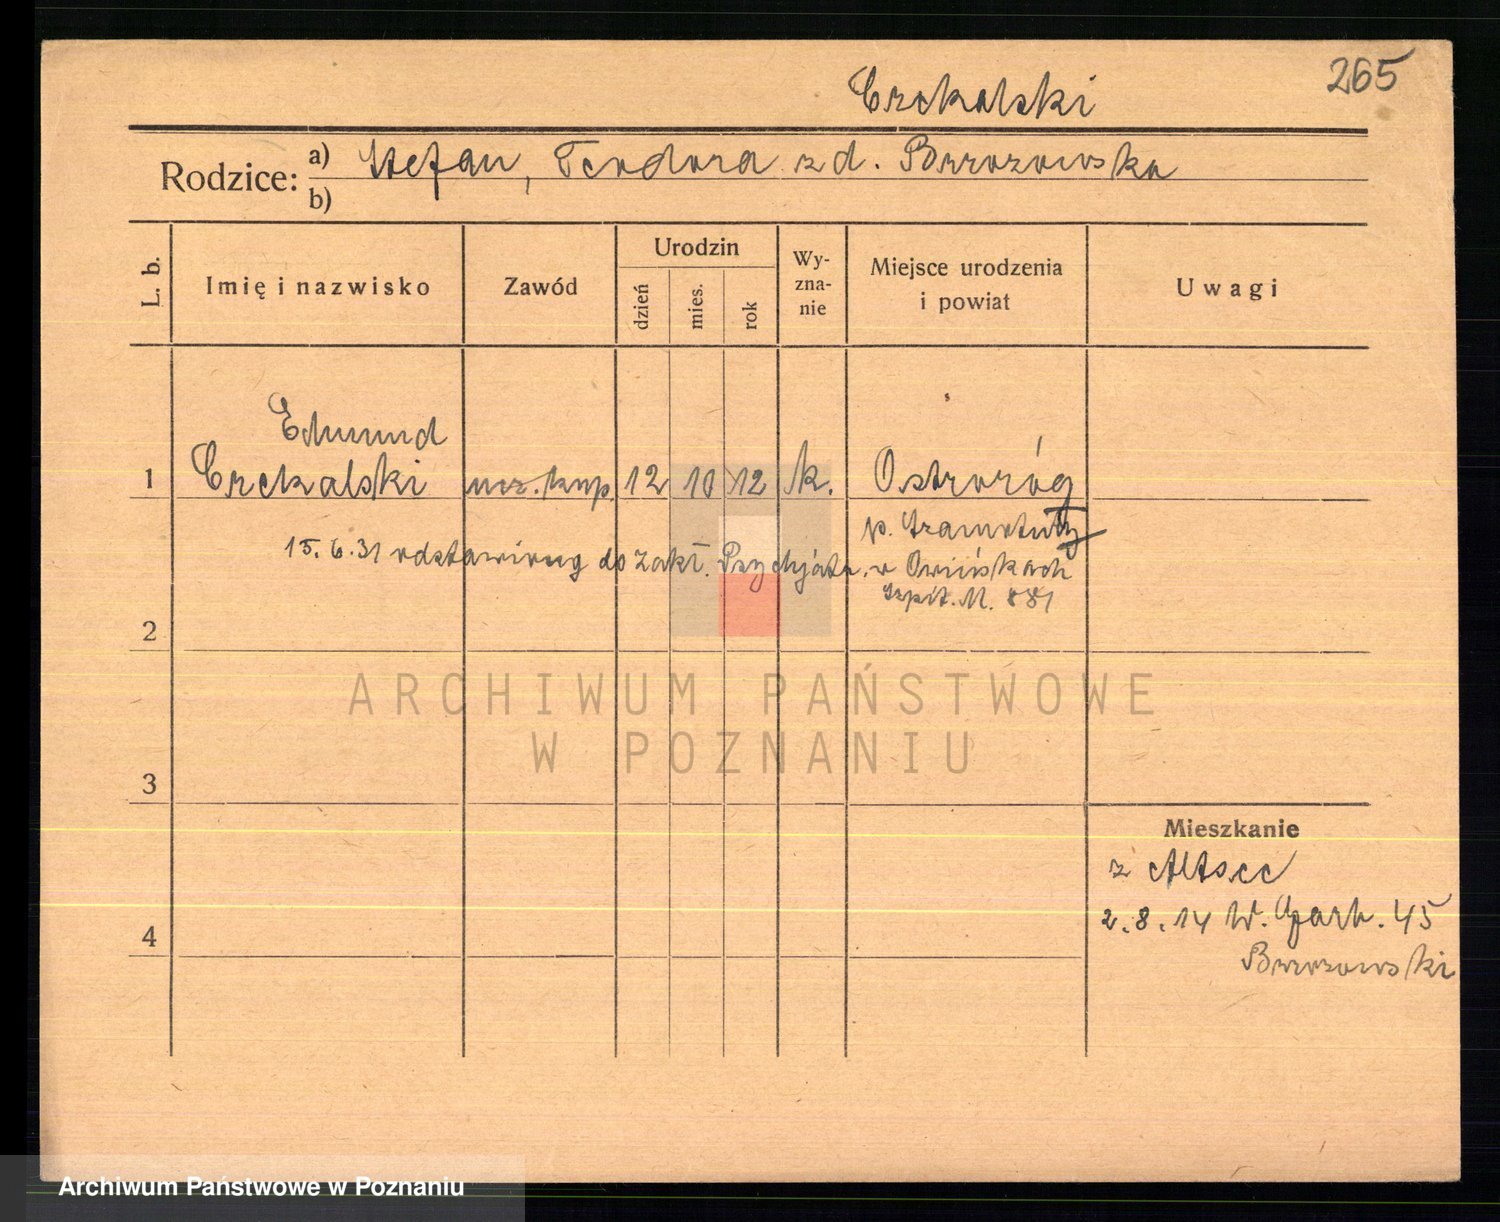 265
Czekalski
Rodzice: a) Stefan, Teodora z d. Brzozowska
b)
L. b. Imię i nazwisko Zawód Urodzin dzień mies. rok Wy-zna-nie Miejsce urodzenia i powiat Uwagi
Edmund
1 Czekalski ucz. kup. 12 10 12 k. Ostroróg
p. Szamotuły
15.6.31 odstawiony do Zakł. Psychjatr. w Owińskach
Szpit. M. 881
2
3
Mieszkanie
z
2.8.14 W. Garb. 45
4
Brzozowski
ARCHIWUM PAŃSTWOWE
W POZNANIU
Archiwum Państwowe w Poznaniu